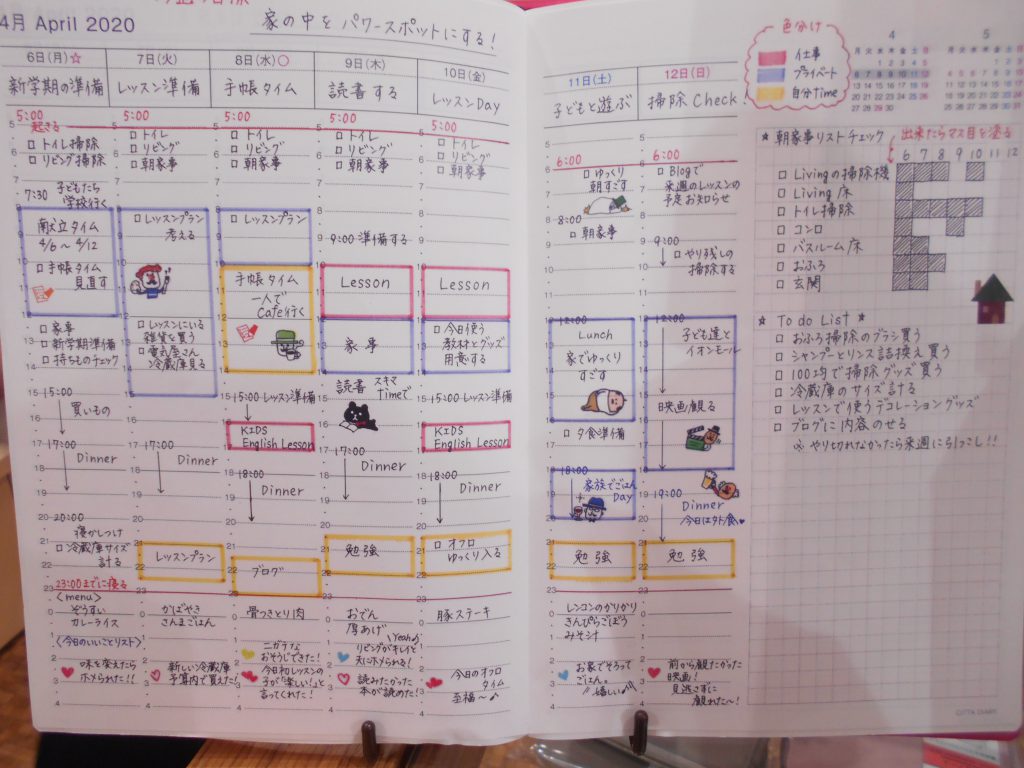 4月 April 2020
家の中をパワースポットにする!
6日(月)☆
新学期の準備
5:00
起きる
□トイレ掃除
□リビング掃除
7:30 子どもたち
学校行く
献立タイム
4/6～4/12
□手帳タイム
見直す
□家事
□新学期準備
□持ちものチェック
15:00
買いもの
17:00
Dinner
20:00
寝かしつけ
□冷蔵庫サイズ
計る
23:00までに寝る
<menu>
ぞうすい
カレーライス
<今日のいいことリスト>
味を変えたら
ホメられた!!
7日(火)
レッスン準備
5:00
□トイレ
□リビング
□朝家事
□レッスンプラン
考える
□レッスンにいる
雑貨を買う
□電気屋さん
冷蔵庫見る
17:00
Dinner
レッスンプラン
かばやき
さんまごはん
新しい冷蔵庫
予算内で買えた!
8日(水)○
手帳タイム
5:00
□トイレ
□リビング
□朝家事
□レッスンプラン
手帳タイム
一人で
Cafe行く
15:00 レッスン準備
KIDS
English Lesson
18:00
Dinner
ブログ
骨つきとり肉
ニガテな
おそうじできた!
今日初レッスンの
子が「楽しい!」と
言ってくれた!
9日(木)
読書する
5:00
□トイレ
□リビング
□朝家事
9:00 準備する
Lesson
家事
読書 スキマ
Timeで
17:00
Dinner
勉強
おでん
厚あげ
Yeah♪
リビングがキレイと
夫にホメられる!
読みたかった
本が読めた!
10日(金)
レッスンDay
5:00
□トイレ
□リビング
□朝家事
Lesson
□今日使う
教材とグッズ
用意する
15:00 レッスン準備
KIDS
English Lesson
18:00
Dinner
□オフロ
ゆっくり入る
豚ステーキ
今日のオフロ
タイム
至福～♪
11日(土)
子どもと遊ぶ
6:00
□ゆっくり
朝すごす
8:00
□朝家事
12:00
Lunch
家でゆっくり
すごす
□夕食準備
18:00
家族でごはん
Day
勉強
レンコンのかりかり
きんぴらごぼう
みそ汁
お家でそろって
ごはん。
嬉しい♪
12日(日)
掃除 Check
6:00
□Blogで
来週のレッスンの
予定お知らせ
9:00
□やり残しの
掃除する
12:00
子ども達と
イオンモール
映画観る
19:00
Dinner
今日は外食♥
勉強
前から観たかった
映画!
見逃さずに
観れた～!
色分け
仕事
プライベート
自分time
4
5
月 火 水 木 金 土 日
★ 朝家事リストチェック
出来たらマス目を塗る
6 7 8 9 10 11 12
□ Livingの掃除機
□ Living 床
□ トイレ掃除
□ コンロ
□ バスルーム床
□ おふろ
□ 玄関
★ To do List ★
□ おふろ掃除のブラシ買う
□ シャンプーとリンス詰換え買う
□ 100均で掃除グッズ買う
□ 冷蔵庫のサイズ計る
□ レッスンで使うデコレーショングッズ
□ ブログに内容のせる
※やり切れなかったら来週に引っこし!!
CITTA DIARY